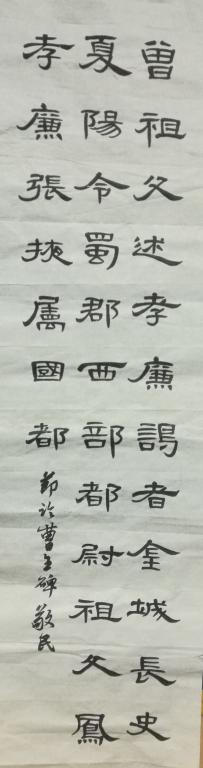 曾祖父述孝廉謁者金城長史
夏陽令蜀郡西部都尉祖父鳳
孝廉張掖属國都
節臨曹全碑敬民